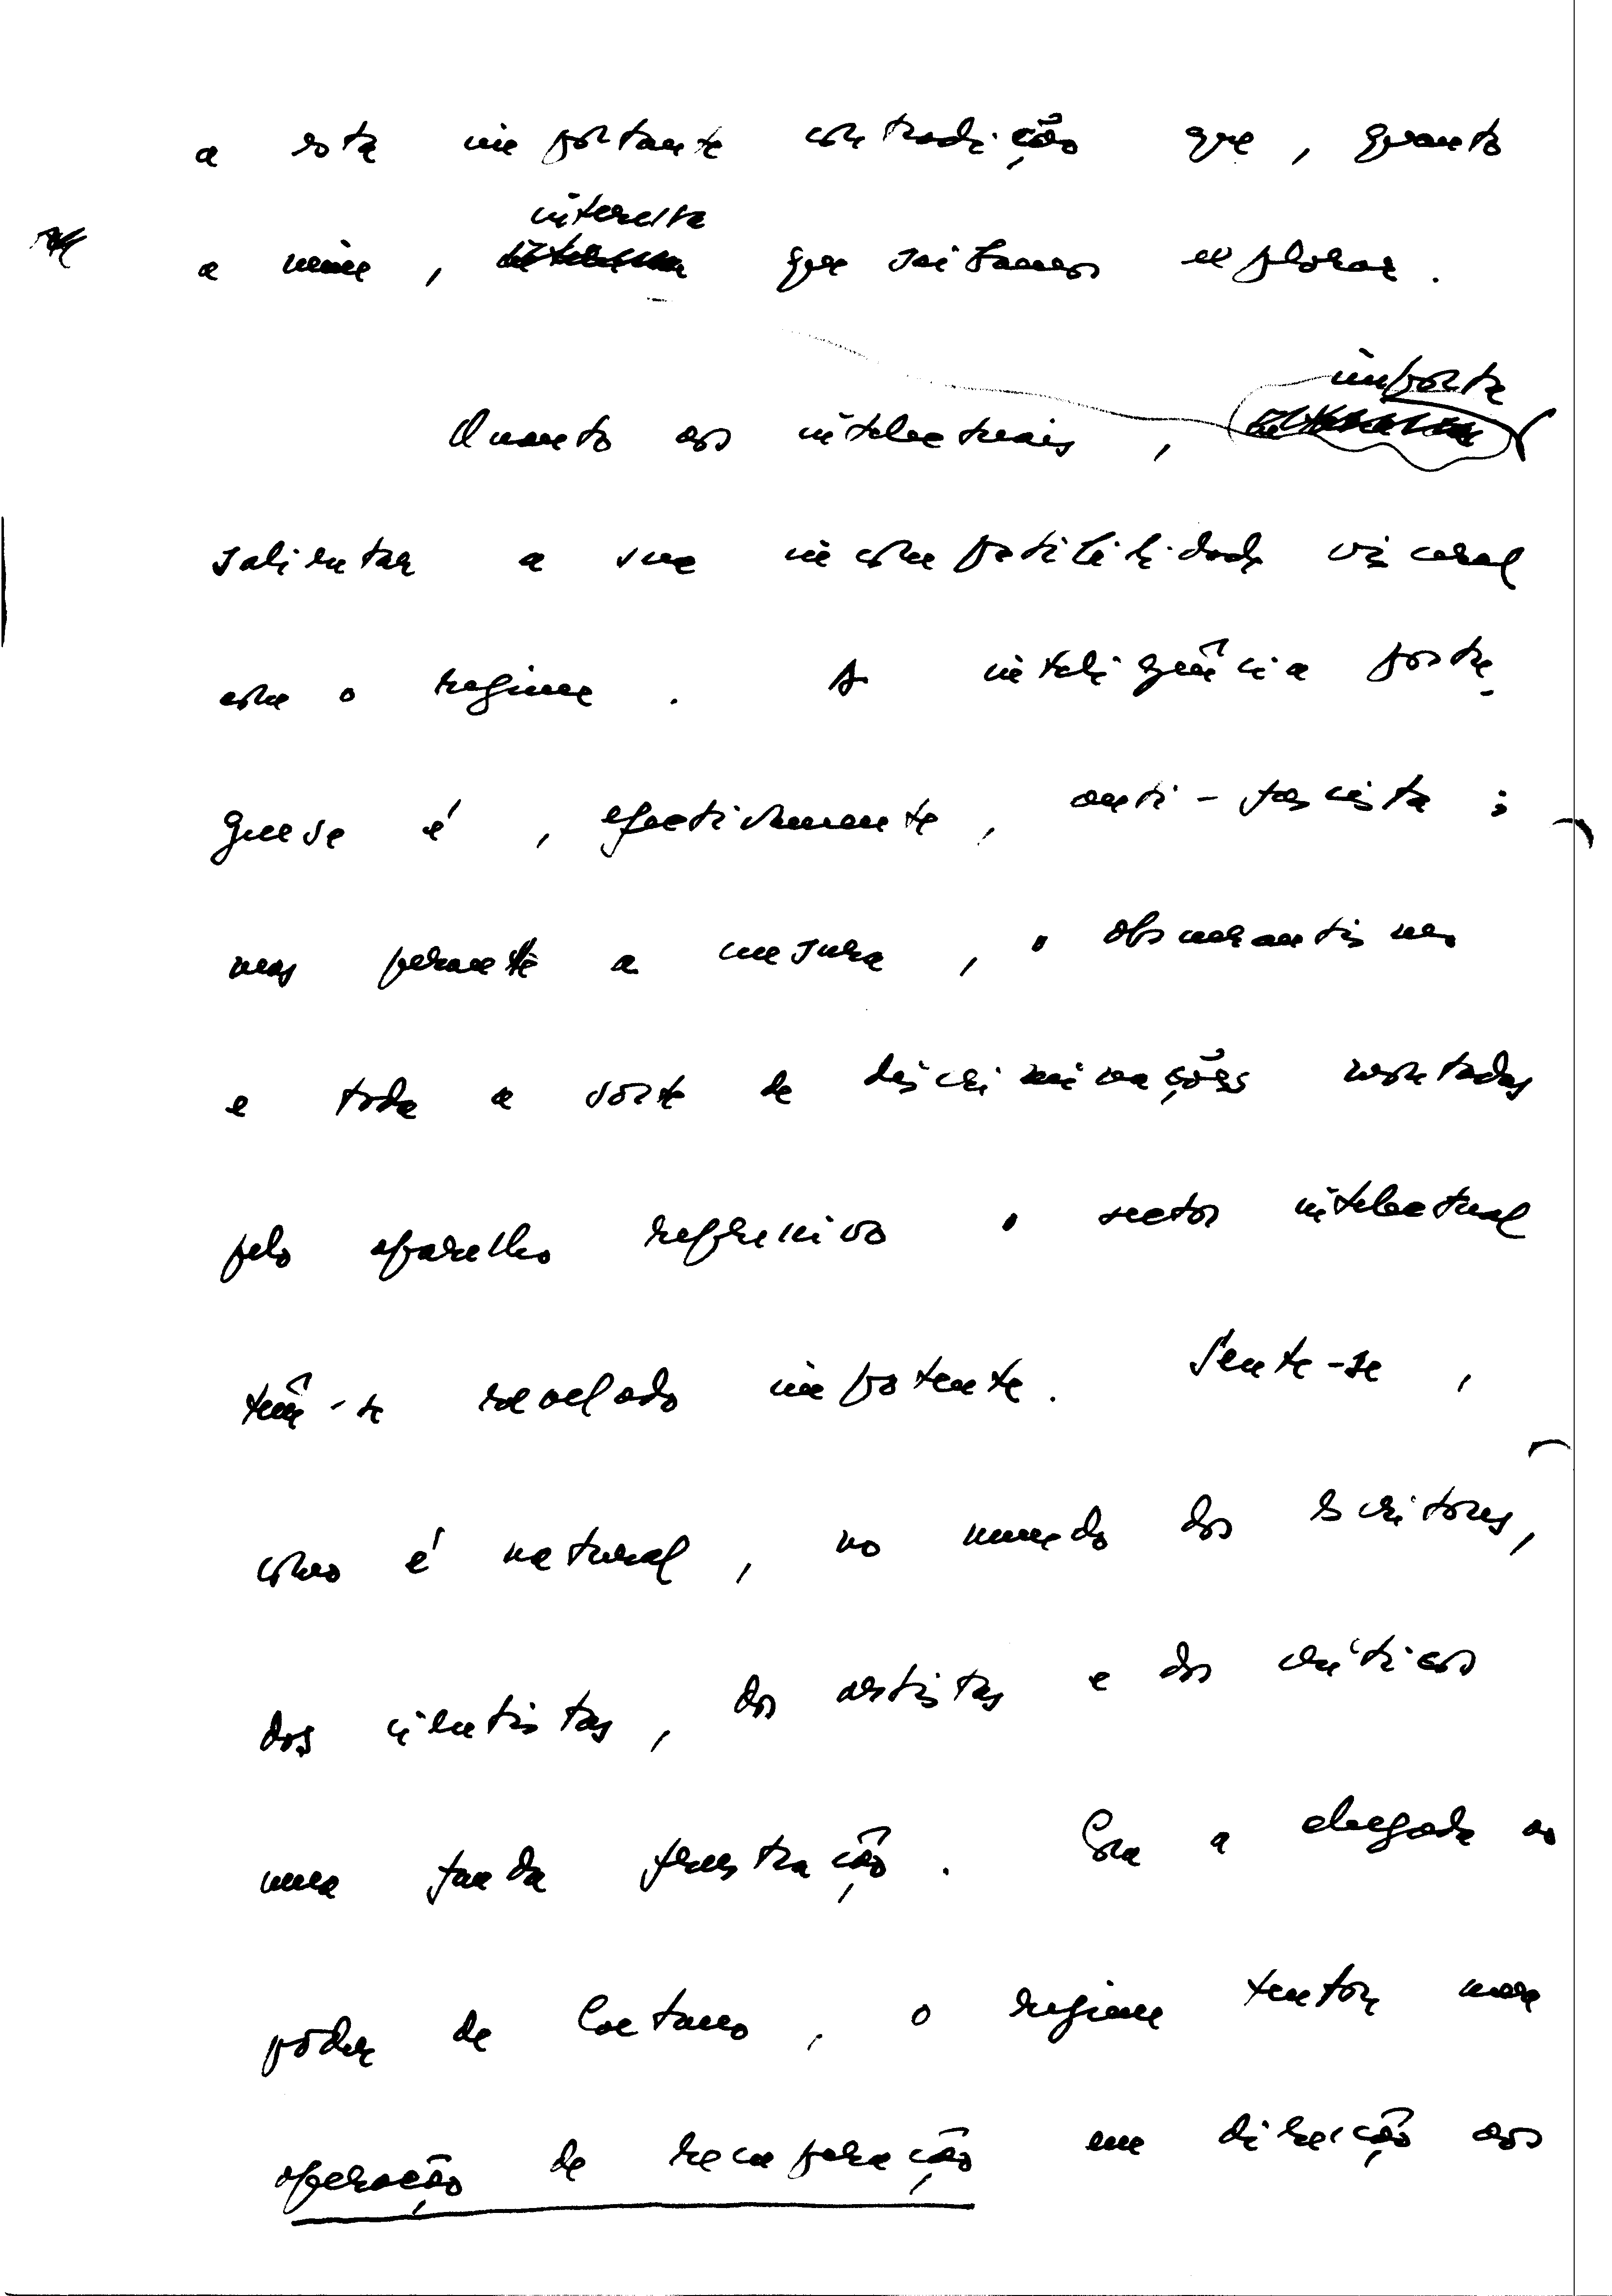 a esta importante contradição que, quanto
interessa
a mim, que saibamos explorar.
importa
Quanto aos intelectuais,
salientar a sua incompatibilidade visceral
com o regime. A inteligência portu-
guesa é, efectivamente, anti-fascista;
mas perante a censura, o obscurantismo
e toda a sorte de discriminações montadas
pelo aparelho repressivo o sector intelectual
tem-se revelado impotente. Sente-se,
como é natural, no mundo dos escritores,
dos cientistas, dos artistas e dos críticos
uma funda frustração. Com a chegada ao
poder de Caetano, o regime tentou uma
operação de recuperação em direcção aos